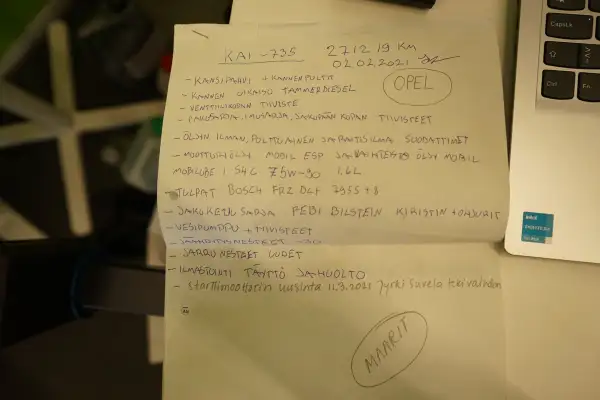 KAI -735 271219 KM
02.02.2021
- KANSIPAHVI + KANNENPULTIT
OPEL
- KANNEN OIKAISU TAMMERDIESEL
- VENTTIILIKOPAN TIIVISTE
- PAKOSARJA, IMUSARJA, JAKOPÄÄN KOPAN TIIVISTEET
- ÖLJYN ILMAN, POLTTOAINEN JA RAITISILMA SUODATTIMET
- MOOTTORIÖLJY MOBIL ESP JA VAIHTEISTO ÖLJY MOBIL
MOBILUBE 1 SHC 75W-90 1,6L
- TULPAT BOSCH FR7DCX 7955 +8
- JAKOKETJU SARJA FEBI BILSTEIN KIRISTIN + OHJURIT
- VESIPUMPPU + TIIVISTEET
- JÄÄHDYTYSNESTEET
- JARRUNESTEET UUDET
- ILMASTOINTI TÄYTTÖ JA HUOLTO
- Starttimoottorin uusinta 11.3.2021 Jyrki Suvela teki vaihdon
MAARIT
Caps Lk
Ctrl Fn
intel